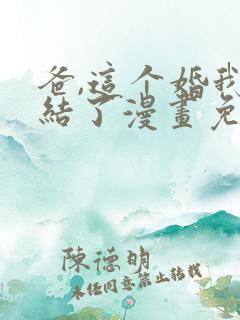 爸,這个婚我
結了漫畫免
陳德明
未经同意禁止转载